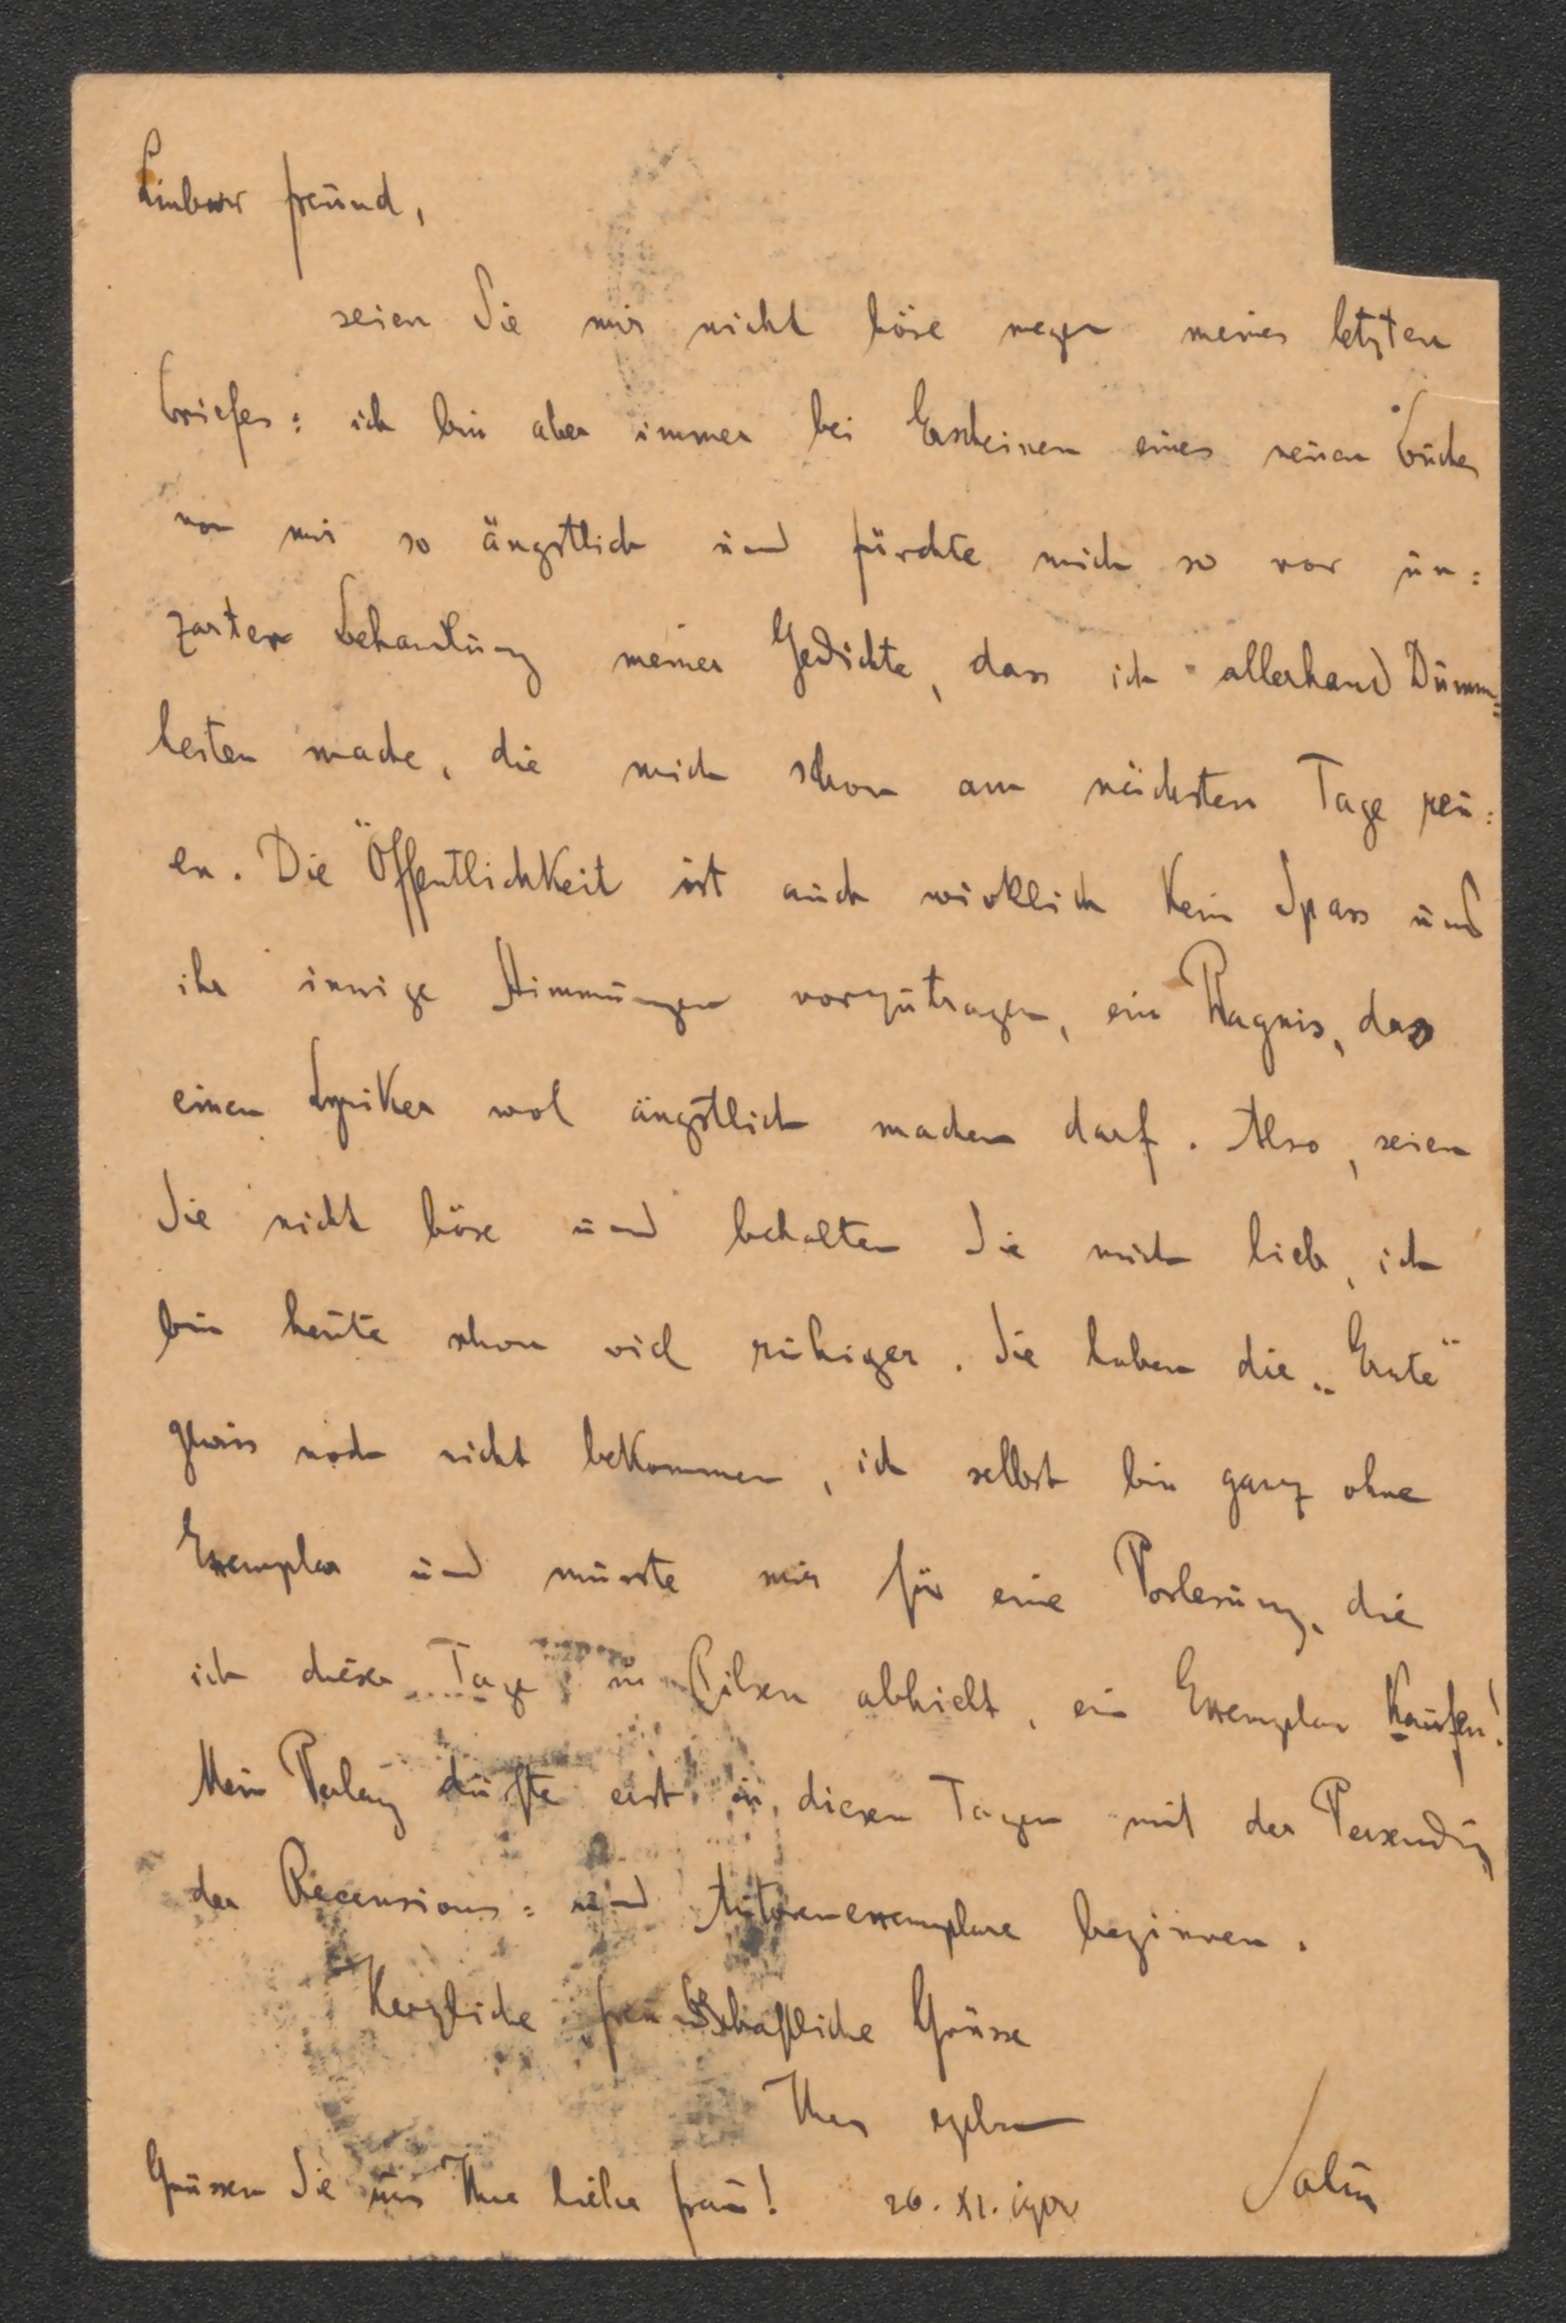 Lieber Freund,
seien Sie mir nicht böse wegen meines letzten
Briefes: ich bin aber immer bei Erscheinen eines neuen Buches
von mir so ängstlich und fürchte mich so vor un:
zarter Behandlung meiner Gedichte, dass ich allerhand Dumm=
heiten mache, die mich schon am nächsten Tage reu:
en. Die Öffentlichkeit ist auch wirklich kein Spass und
ihr innige Stimmungen vorzutragen, ein Wagnis, das
einen Lyriker wol ängstlich machen darf. Also, seien
Sie nicht böse und behalten Sie mich lieb, ich
bin heute schon viel ruhiger. Sie haben die „Ernte“
gewiss noch nicht bekommen, ich selbst bin ganz ohne
Exemplar und musste mir für eine Vorlesung, die
ich dieser Tage in Pilsen abhielt, ein Exemplar kaufen!
Mein Verlag dürfte erst in diesen Tagen mit der Versendung
der Recensions= und Autorenexemplare beginnen.
Herzliche freundschaftliche Grüsse
Ihres ergebenen
Salus
Grüssen Sie uns Ihre liebe Frau! 26. XI.